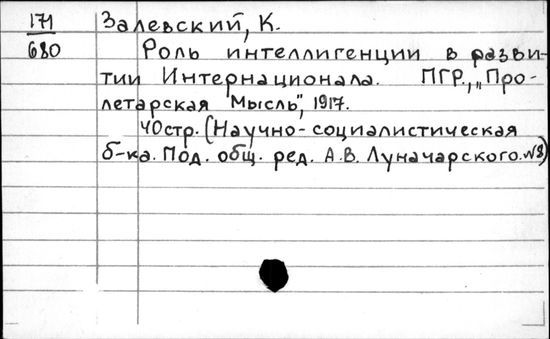 171
680
Залевский, К.
Роль интеллигенции в разви-
тии Интернационала. ПГР., „Про-
летарская Мысль", 1917.
40стр. (Научно-социалистическая
б-ка. Под. общ. ред. А.В. Луначарского. №8)